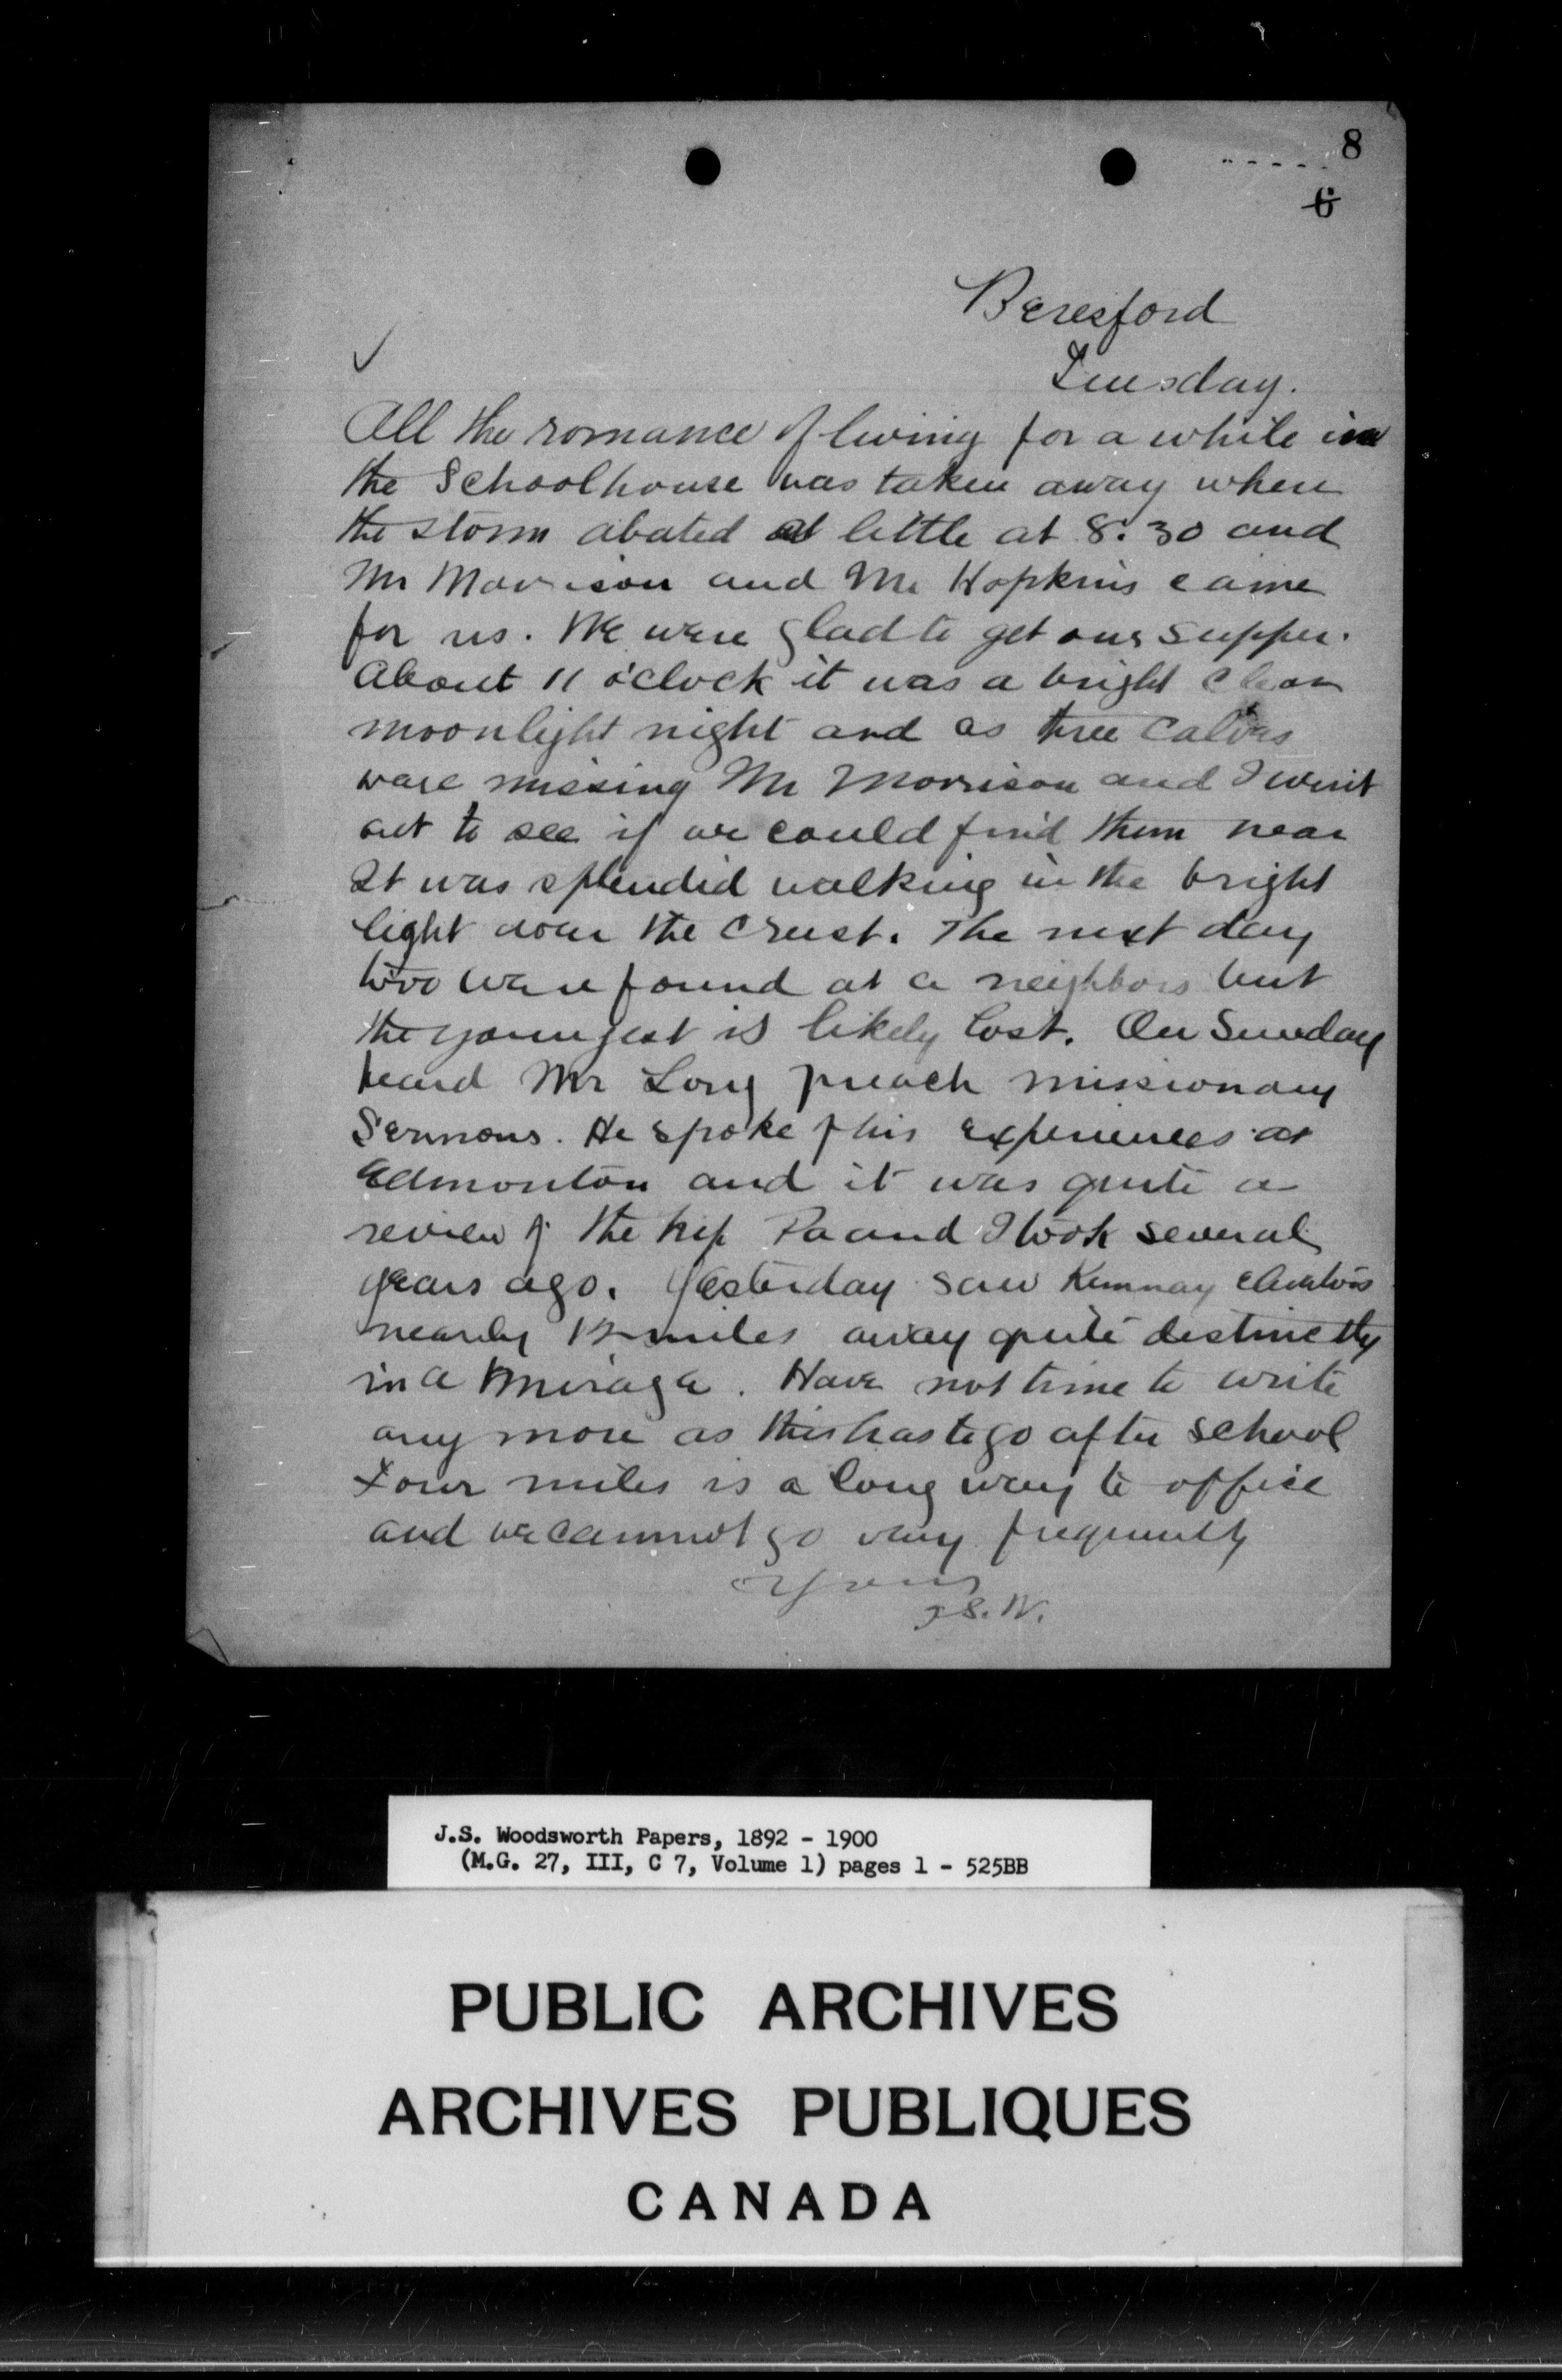 8
6
Beresford
Tuesday.
All the romance of living for a while in
the Schoolhouse was taken away when
the storm abated a little at 8:30 and
Mr Morrison and Mr Hopkins came
for us. We were glad to get our supper.
About 11 o'clock it was a bright clear
moonlight night and as three calves
were missing Mr Morrison and I went
out to see if we could find them near
It was splendid walking in the bright
light over the crust. The next day
two were found at a neighbors but
the youngest is likely lost. On Sunday
heard Mr Long preach missionary
Sermons. He spoke of his experiences at
Edmonton and it was quite a
review of the trip Pa and I took several
years ago. Yesterday saw Kemnay elevators
nearly 12 miles away quite distinctly
in a mirage. Have not time to write
any more as this has to go after school
Four miles is a long way to office
and we cannot go very frequently
Yours
J.S.W.
J.S. Woodsworth Papers, 1892 - 1900
(M.G. 27, III, C 7, Volume 1) pages 1 - 525BB
PUBLIC ARCHIVES
ARCHIVES PUBLIQUES
CANADA